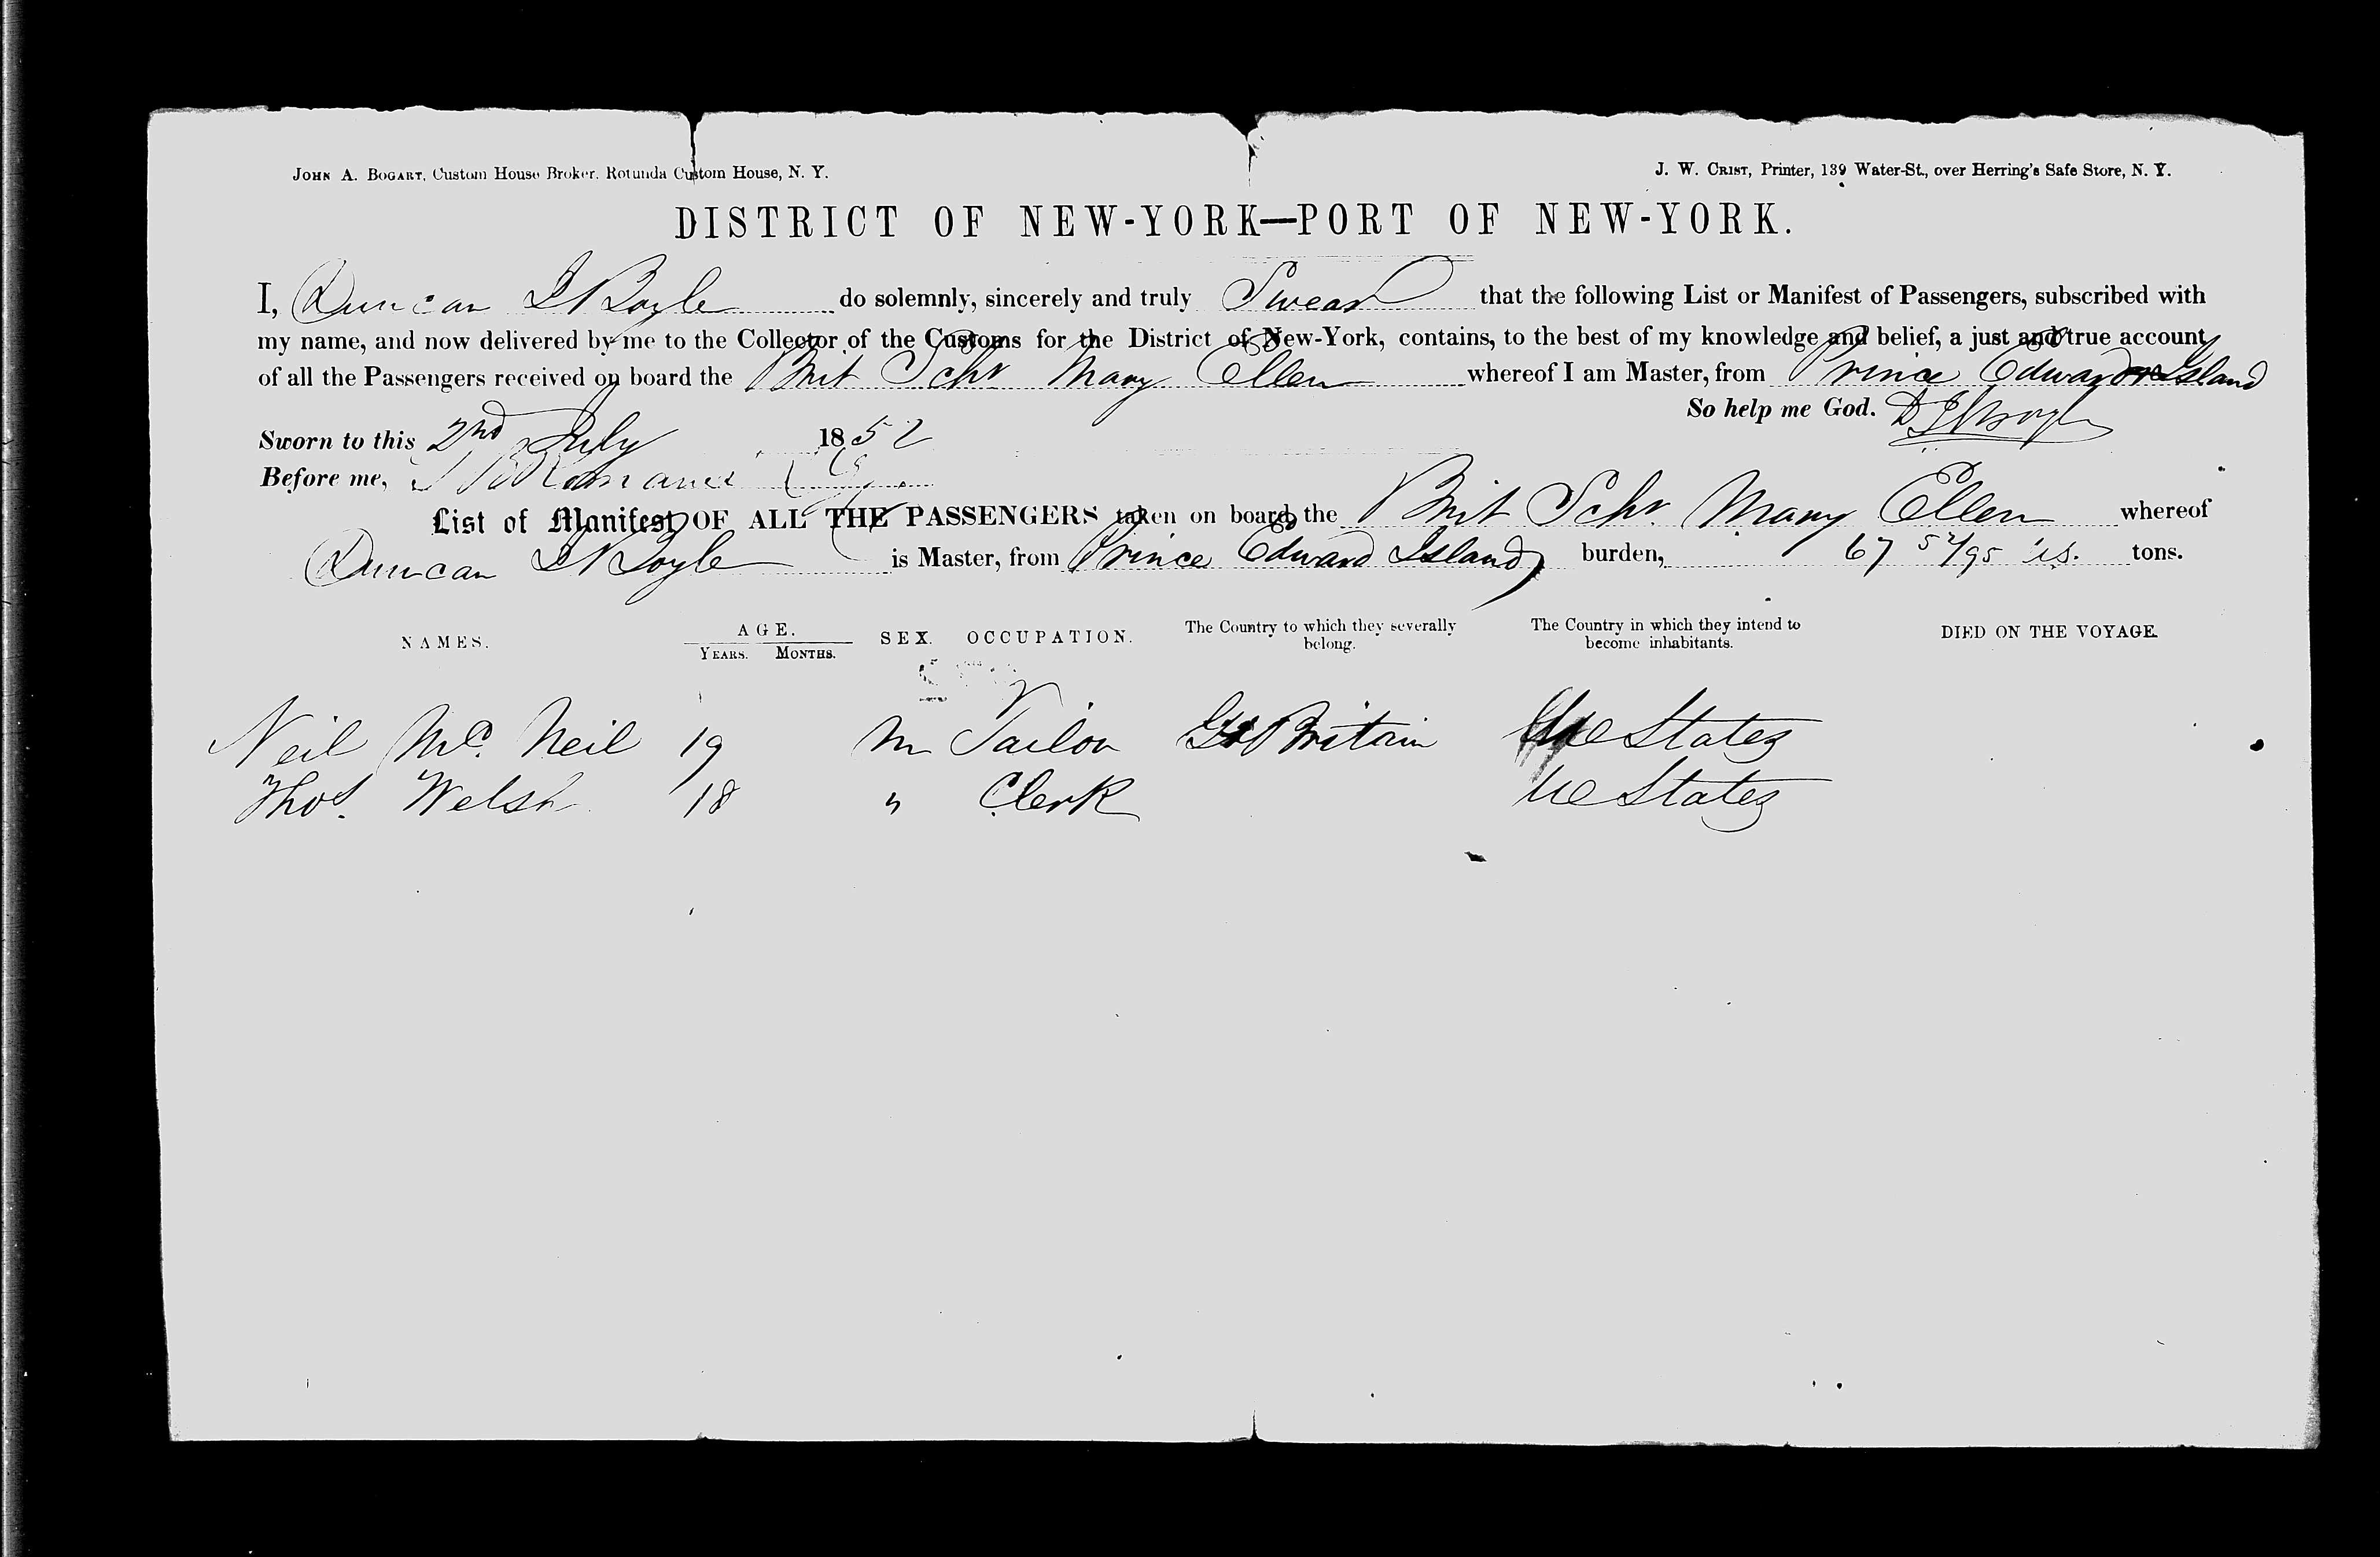 JOHN A. BOGART, Custom House Broker. Rotunda Custom House, N. Y.
J. W. CRIST, Printer, 139 Water-St., over Herring's Safe Store, N. Y.
DISTRICT OF NEW-YORK—PORT OF NEW-YORK.
I, Duncan Boyle do solemnly, sincerely and truly Swear that the following List or Manifest of Passengers, subscribed with
my name, and now delivered by me to the Collector of the Customs for the District of New-York, contains, to the best of my knowledge and belief, a just and true account
of all the Passengers received on board the Brit Schr Mary Ellen whereof I am Master, from Prince Edward Island
So help me God.
Sworn to this 2nd July 1852
Before me,
List of Manifest OF ALL THE PASSENGERS taken on board the Brit Schr. Mary Ellen whereof
Duncan Boyle is Master, from Prince Edward Island burden, 67 52/95 U.S. tons.
NAMES. AGE. YEARS. MONTHS. SEX. OCCUPATION. The Country to which they severally belong. The Country in which they intend to become inhabitants. DIED ON THE VOYAGE.
Neil Mc. Neil 19 M Tailor Gt Britain Ue States
Thos. Welsh 18 " Clerk Ue States